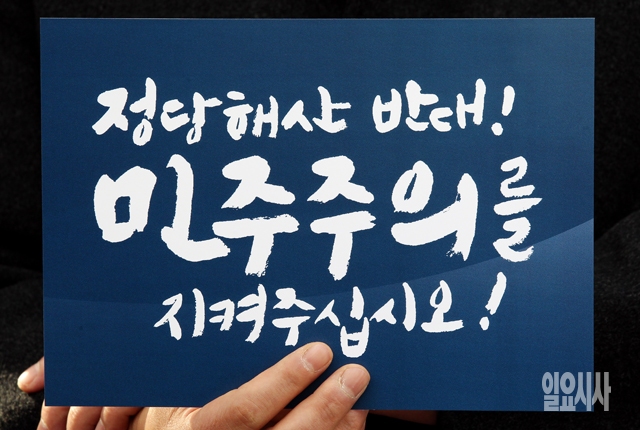 정당해산 반대!
민주주의를
지켜주십시오!
일요시사